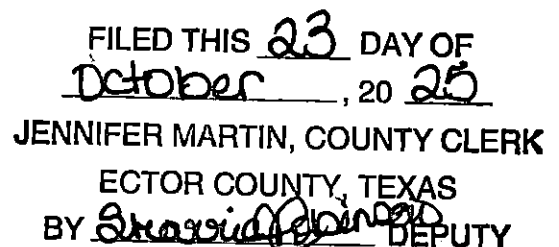 FILED THIS 23 DAY OF
October, 20 25
JENNIFER MARTIN, COUNTY CLERK
ECTOR COUNTY, TEXAS
BY DEPUTY